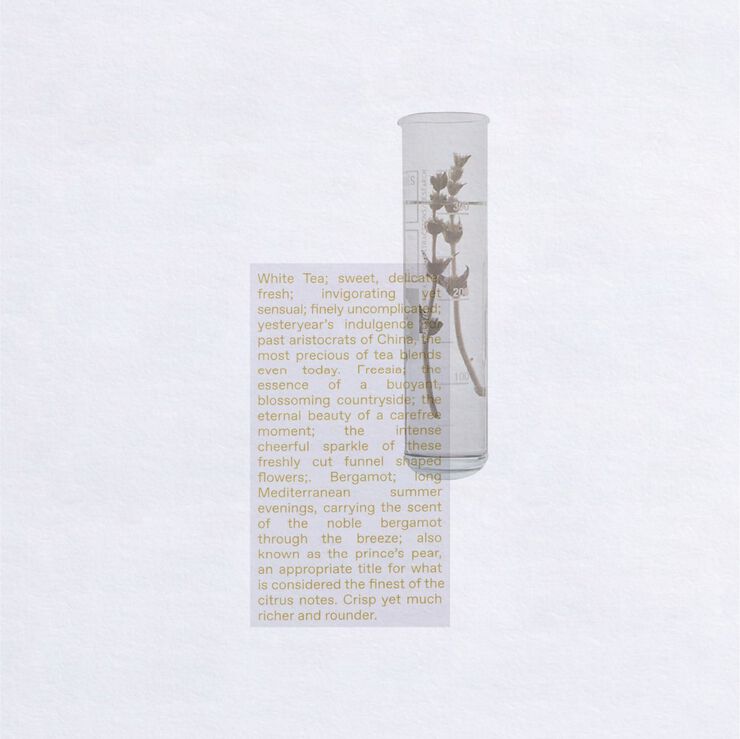 White Tea; sweet, delicate,
fresh; invigorating yet
sensual; finely uncomplicated;
yesteryear's indulgence for
past aristocrats of China, the
most precious of tea blends
even today. Freesia; the
essence of a buoyant,
blossoming countryside; the
eternal beauty of a carefree
moment; the intense
cheerful sparkle of these
freshly cut funnel shaped
flowers;. Bergamot; long
Mediterranean summer
evenings, carrying the scent
of the noble bergamot
through the breeze; also
known as the prince's pear,
an appropriate title for what
is considered the finest of the
citrus notes. Crisp yet much
richer and rounder.
200
100